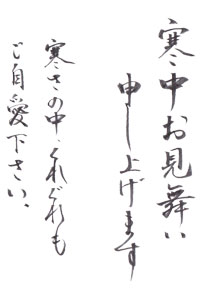 寒中お見舞い
申し上げます
寒さの中、くれぐれも
ご自愛下さい、